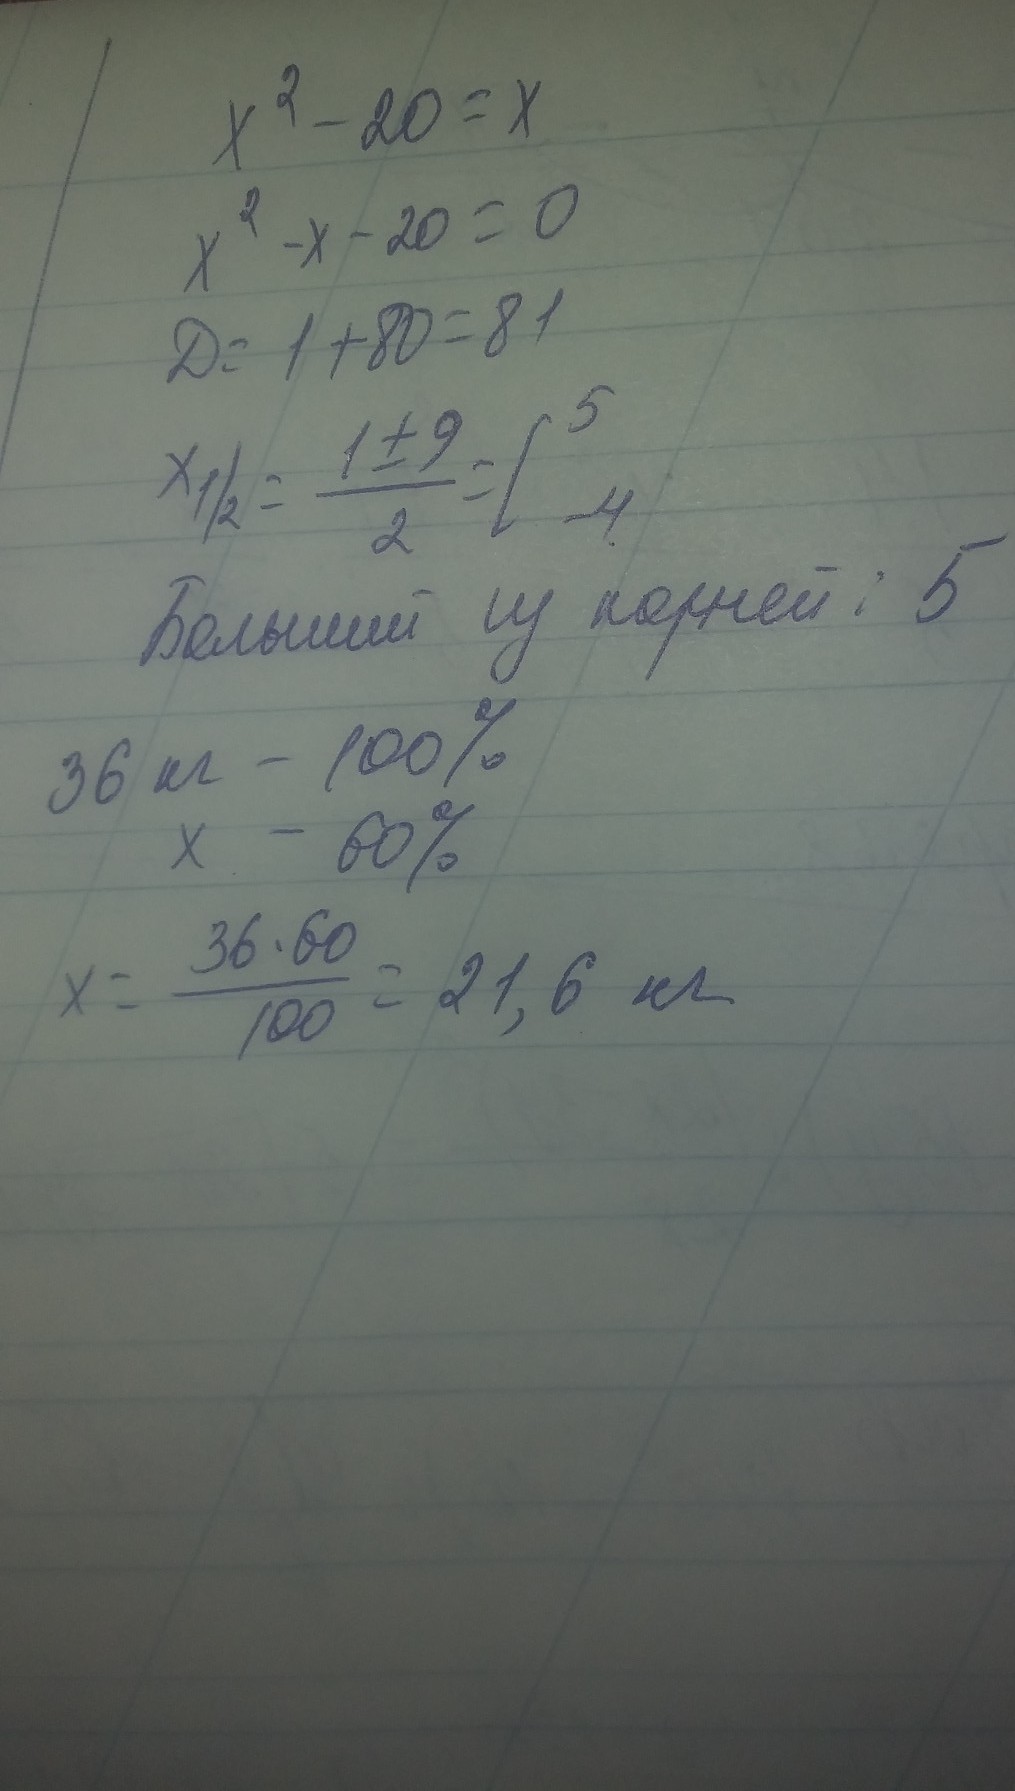 x² - 20 = x
x² - x - 20 = 0
D = 1 + 80 = 81
x1/2 = (1 ± 9)/2 = [ 5 -4
Больший из корней: 5
36 кг - 100%
x - 60%
x = (36 · 60)/100 = 21,6 кг